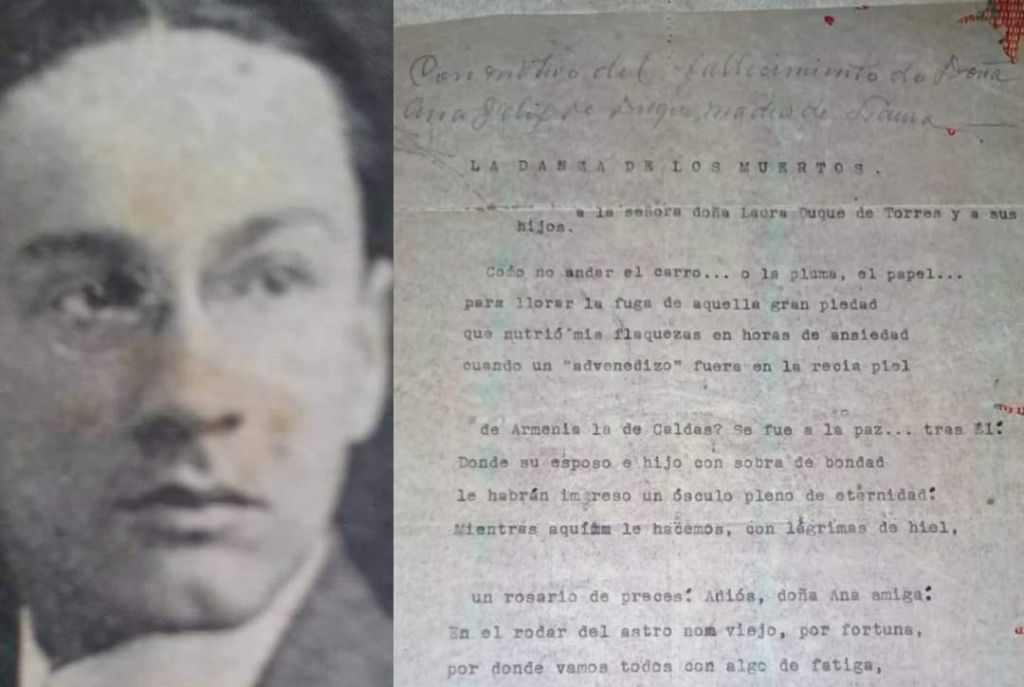 Con motivo del fallecimiento de Doña
Ana Felix de Duque, madre de Laura
LA DANZA DE LOS MUERTOS.
a la señora doña Laura Duque de Torres y a sus
hijos.
Coño no andar el carro... o la pluma, el papel...
para llorar la fuga de aquella gran piedad
que nutrió mis flaquezas en horas de ansiedad
cuando un "advenedizo" fuera en la recia piel
de Armenia la de Caldas? Se fue a la paz... tras El:
Donde su esposo e hijo con sobra de bondad
le habrán impreso un ósculo pleno de eternidad:
Mientras aquí le hacemos, con lágrimas de hiel,
un rosario de preces: Adiós, doña Ana amiga:
En el rodar del astro nom viejo, por fortuna,
por donde vamos todos con algo de fatiga,